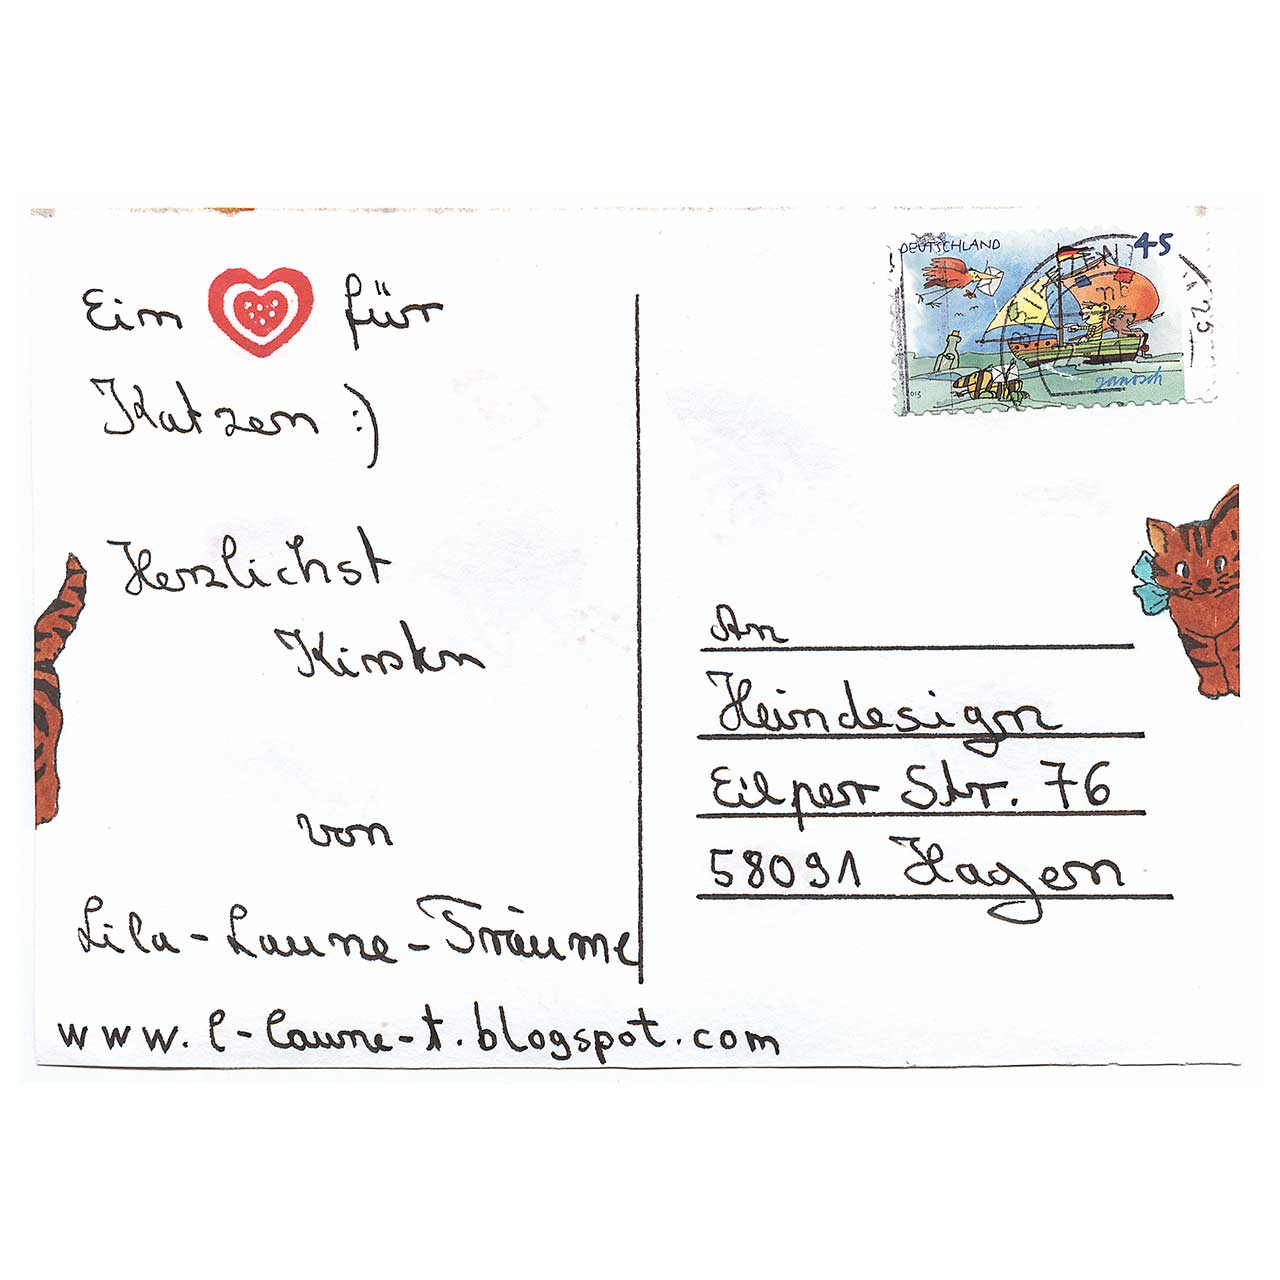 Ein für
Katzen :)
Herzlichst
Kirsten
von
Lila-Laune-Träume
www.l-laune-t.blogspot.com
DEUTSCHLAND 45
janosch
2013
25
An
Heindesign
Eilper Str. 76
58091 Hagen